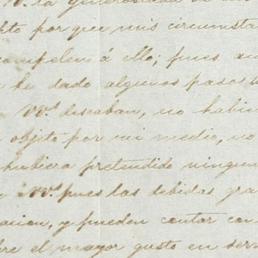 la generosidad
to por que mis circunsta
compelen á ello; pues au
he dado algunos pasos
VV.ˢ deseaban, no habie
objeto por mi medio, no
hubiera pretendido ningun
VV.ˢ pues las debidas gra
acion, y pueden contar con
re el mayor gusto en ser